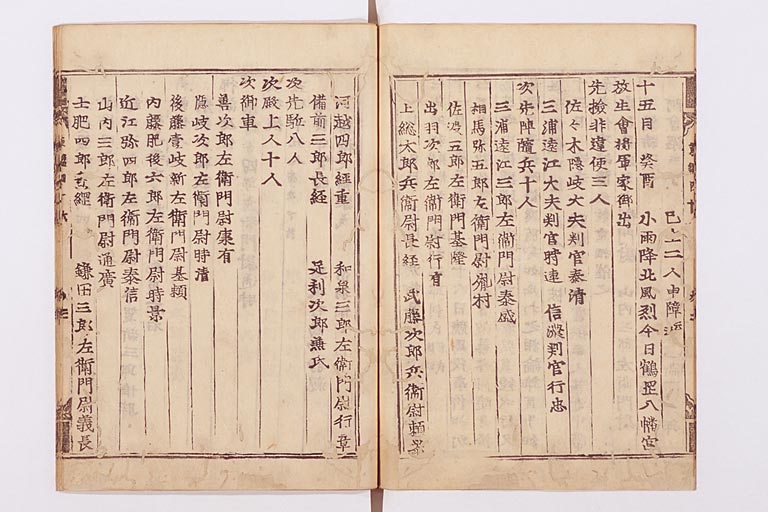 巳上二人申障
十五日 癸酉 小雨降北風烈今日鶴罡八幡宮
放生會将軍家御出
先撿非違使三人
佐々木隠岐大夫判官泰清
三浦遠江大夫判官時連 信濃判官行忠
次先陣隨兵十人
三浦遠江三郎左衛門尉泰盛
相馬弥五郎左衛門尉胤村
佐渡五郎左衛門基隆
出羽次郎左衛門尉行有
上総太郎兵衛尉長経 武藤次郎兵衛尉頼泰
河越四郎経重 和泉三郎左衛門尉行章
備前三郎長経 足利次郎兼氏
次先駈八人
次殿上人十人
次御車
善次郎左衛門尉康有
隠岐次郎左衛門尉時清
後藤壹岐新左衛門尉基頼
内藤肥後六郎左衛門尉時景
近江弥四郎左衛門尉泰信
山内三郎左衛門尉通廣
土肥四郎實經 鎌田三郎左衛門尉義長